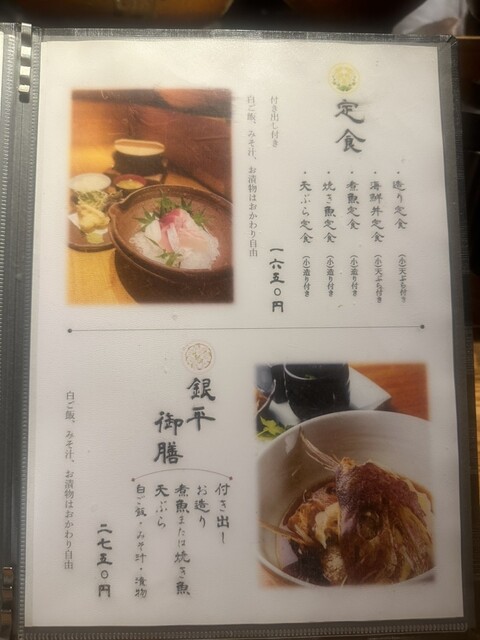 定食
・造り定食 (小)天ぷら付き
・海鮮丼定食 (小)天ぷら付き
・煮魚定食 (小)造り付き
・焼き魚定食 (小)造り付き
・天ぷら定食 (小)造り付き
一六五〇円
付き出し付き
白ご飯、みそ汁、お漬物はおかわり自由
銀平
御膳
付き出し
お造り
煮魚または焼き魚
天ぷら
白ご飯・みそ汁・漬物
二七五〇円
白ご飯、みそ汁、お漬物はおかわり自由